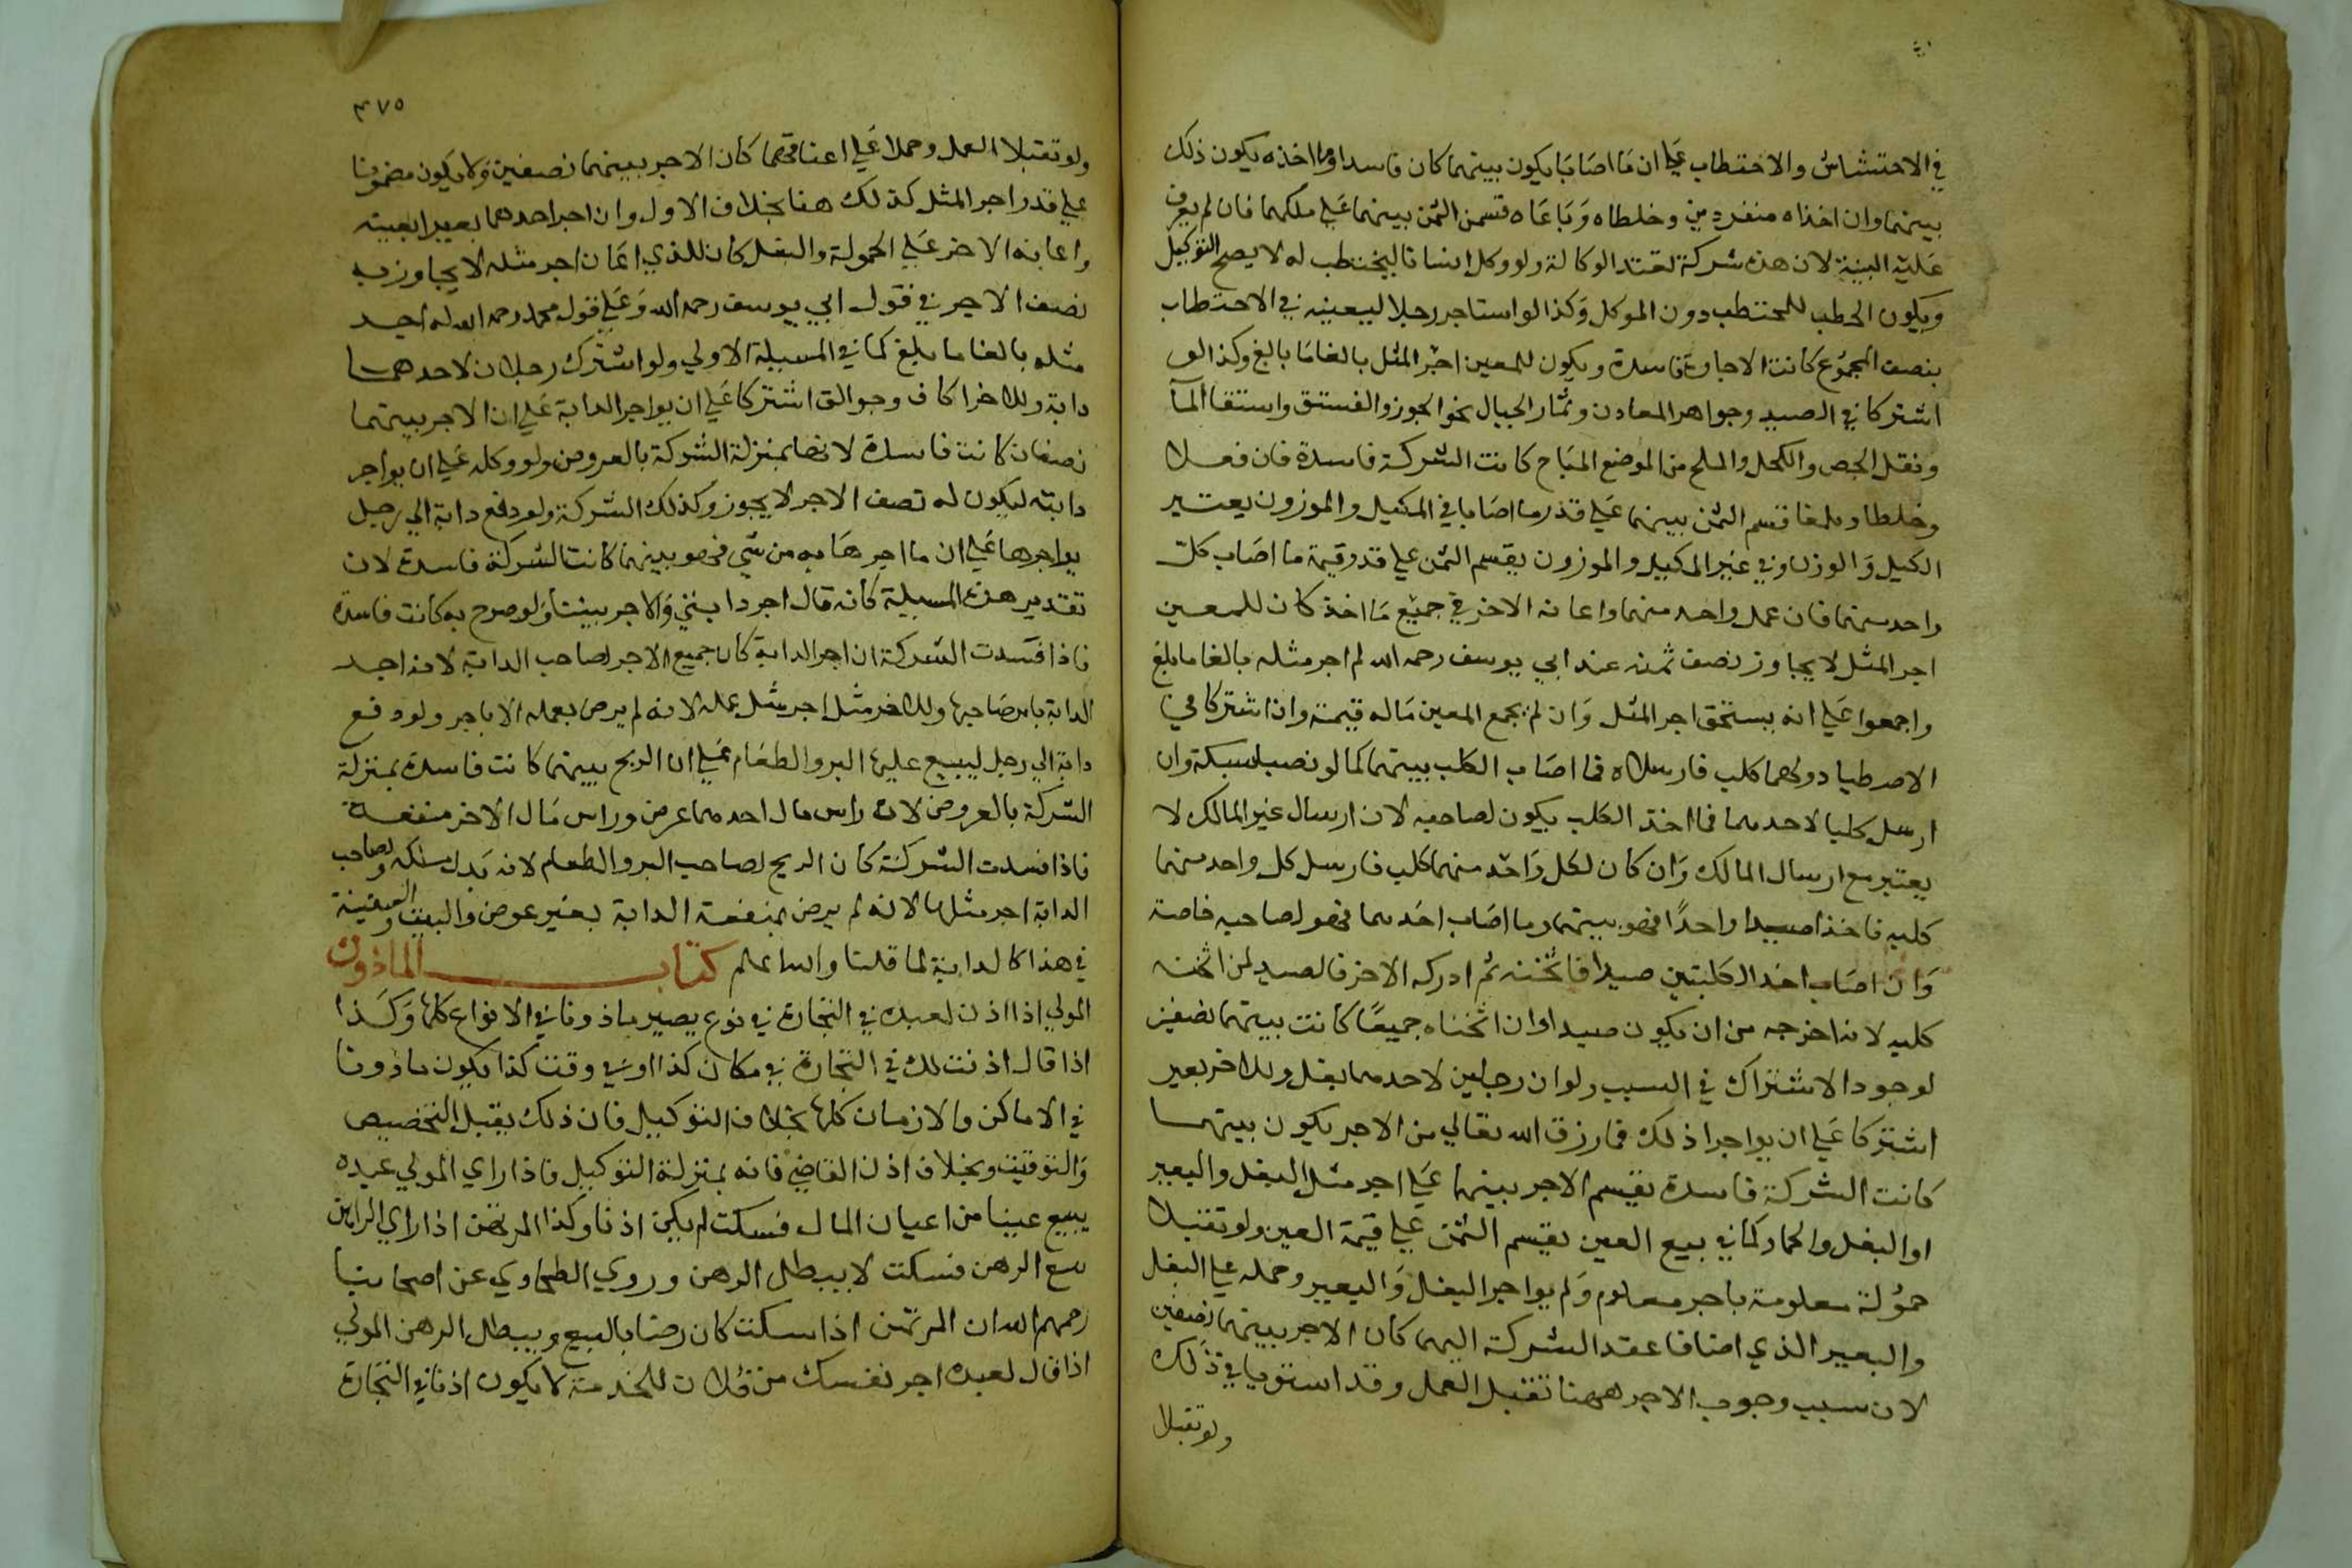 في الاحتشاش والاحتطاب علي ان ما اصابا يكون بينهما كان فاسدا وما اخذه يكون ذلك
بينهما وان اخذاه منفردين وخلطاه وباعاه قسمن الثمن بينهما علي ملكهما فان لم يعرف
عليه البينة لان هذه شركة تعتمد الوكالة ولو وكل انسانا ليحتطب له لا يصح التوكيل
ويكون الحطب للمحتطب دون الموكل وكذا لو استاجر رجلا ليعينه في الاحتطاب
بنصف المجموع كانت الاجارة فاسدة ويكون للمعين اجر المثل بالغا ما بالغ وكذا لو
اشتركا في الصيد وجواهر المعادن وثمار الجبال نحو الجوز والفستق واستقا المآ
ونقل الجص والكحل والملح من الموضع المباح كانت الشركة فاسدة فان فعلا
وخلطا وبلغا قسم الثمن بينهما علي قدر ما اصابا في المكيل والموزون يعتبر
الكيل والوزن وفي غير المكيل والموزون يقسم الثمن علي قدر قيمة ما اصاب كل
واحد منهما فان عمل واحد منهما واعانه الاخر في جميع ما اخذ كان للمعين
اجر المثل لا يجاوز نصف ثمنه عند ابي يوسف رحمه الله لم اجر مثله بالغا ما بلغ
واجمعوا علي انه يستحق اجر المثل وان لم يجمع المعين ماله قيمة وان اشتركا في
الاصطياد ولهما كلب فارسلاه فما اصاب الكلب بينهما كما لو نصبا شبكة وان
ارسل كلبا لاحدهما فما اخذ الكلب يكون لصاحبه لان ارسال غير المالك لا
يعتبر مع ارسال المالك وان كان لكل واحد منهما كلب فارسل كل واحد منهما
كلبه فاخذا صيدا واحدا فهو بينهما وما اصاب احدهما فهو لصاحبه خاصة
وان اصاب احد الكلبين صيدا فاثخنه ثم ادركه الاخر فالصيد لمن اثخنه
كلبه لانه اخرجه من ان يكون صيدا وان اثخناه جميعا كانت بينهما نصفين
لوجود الاشتراك في السبب ولو ان رجلين لاحدهما بغل وللاخر بعير
اشتركا علي ان يواجرا ذلك فما رزق الله تعالي من الاجر يكون بينهما
كانت الشركة فاسدة يقسم الاجر بينهما علي اجر مثل البغل والبعير
او البغل والحمار كما في بيع العين يقسم الثمن علي قيمة العين ولو تقبلا
حمولة معلومة باجر معلوم ولم يواجرا البغل والبعير وحمله علي البغل
والبعير الذي اضافا عقد الشركة اليهما كان الاجر بينهما نصفين
لان سبب وجوب الاجر ههنا تقبل العمل وقد استويا في ذلك
ولو تقبلا
٣٧٥
ولو تقبلا العمل وحملا علي اعناقهما كان الاجر بينهما نصفين ولا يكون مضمونا
علي قدر اجر المثل كذلك هنا بخلاف الاول وان اجر احدهما بعيرا بعينه
واعانه الاخر علي الحمولة والنقل كان للذي اعان اجر مثله لا يجاوز به
نصف الاجر في قول ابي يوسف رحمه الله وعلي قول محمد رحمه الله له اجر
مثله بالغا ما بلغ كما في المسيلة الاولي ولو اشترك رجلان لاحدهما
دابة وللاخر اكاف وجوالق اشتركا علي ان يواجر الدابة علي ان الاجر بينهما
نصفان كانت فاسدة لانها بمنزلة الشركة بالعروض ولو وكله علي ان يواجر
دابته ليكون له نصف الاجر لا يجوز وكذلك الشركة ولو دفع دابة الي رجل
يواجرها علي ان ما اجرها به من شي فهو بينهما كانت الشركة فاسدة لان
تقدير هذه المسيلة كانه قال اجر دابتي والاجر بيننا ولو صرح به كانت فاسدة
فاذا فسدت الشركة ان اجر الدابة كان جميع الاجر لصاحب الدابة لانه اجر
الدابة بامر صاحبها وللاخر مثل اجر مثل عمله لانه لم يرض بعمله الا باجر ولو دفع
دابة الي رجل ليبيع عليها البر والطعام علي ان الربح بينهما كانت فاسدة بمنزلة
الشركة بالعروض لان راس مال احدهما عرض وراس مال الاخر منفعة
فاذا فسدت الشركة كان الربح لصاحب البر والطعام لانه بدل ملكه ولصاحب
الدابة اجر مثلها لانه لم يرض بمنفعة الدابة بغير عوض والبيت والسفينة
في هذا كالدابة لما قلنا والله اعلم كتاب الماذون
المولي اذا اذن لعبده في التجارة في نوع يصير ماذونا في الانواع كلها وكذا
اذا قال اذنت لك في التجارة في مكان كذا او في وقت كذا يكون ماذونا
في الاماكن والازمان كلها بخلاف التوكيل فان ذلك يقبل التخصيص
والتوقيت وبخلاف اذن القاضي فانه بمنزلة التوكيل فاذا راي المولي عبده
يبيع عينا من اعيان المال فسكت لم يكن اذنا وكذا المرتهن اذا راي الراهن
يبيع الرهن فسكت لا يبطل الرهن وروي الطحاوي عن اصحابنا
رحمهم الله ان المرتهن اذا سكت كان رضا بالبيع ويبطل الرهن المولي
اذا قال لعبده اجر نفسك من فلان للخدمة لا يكون اذنا في التجارة